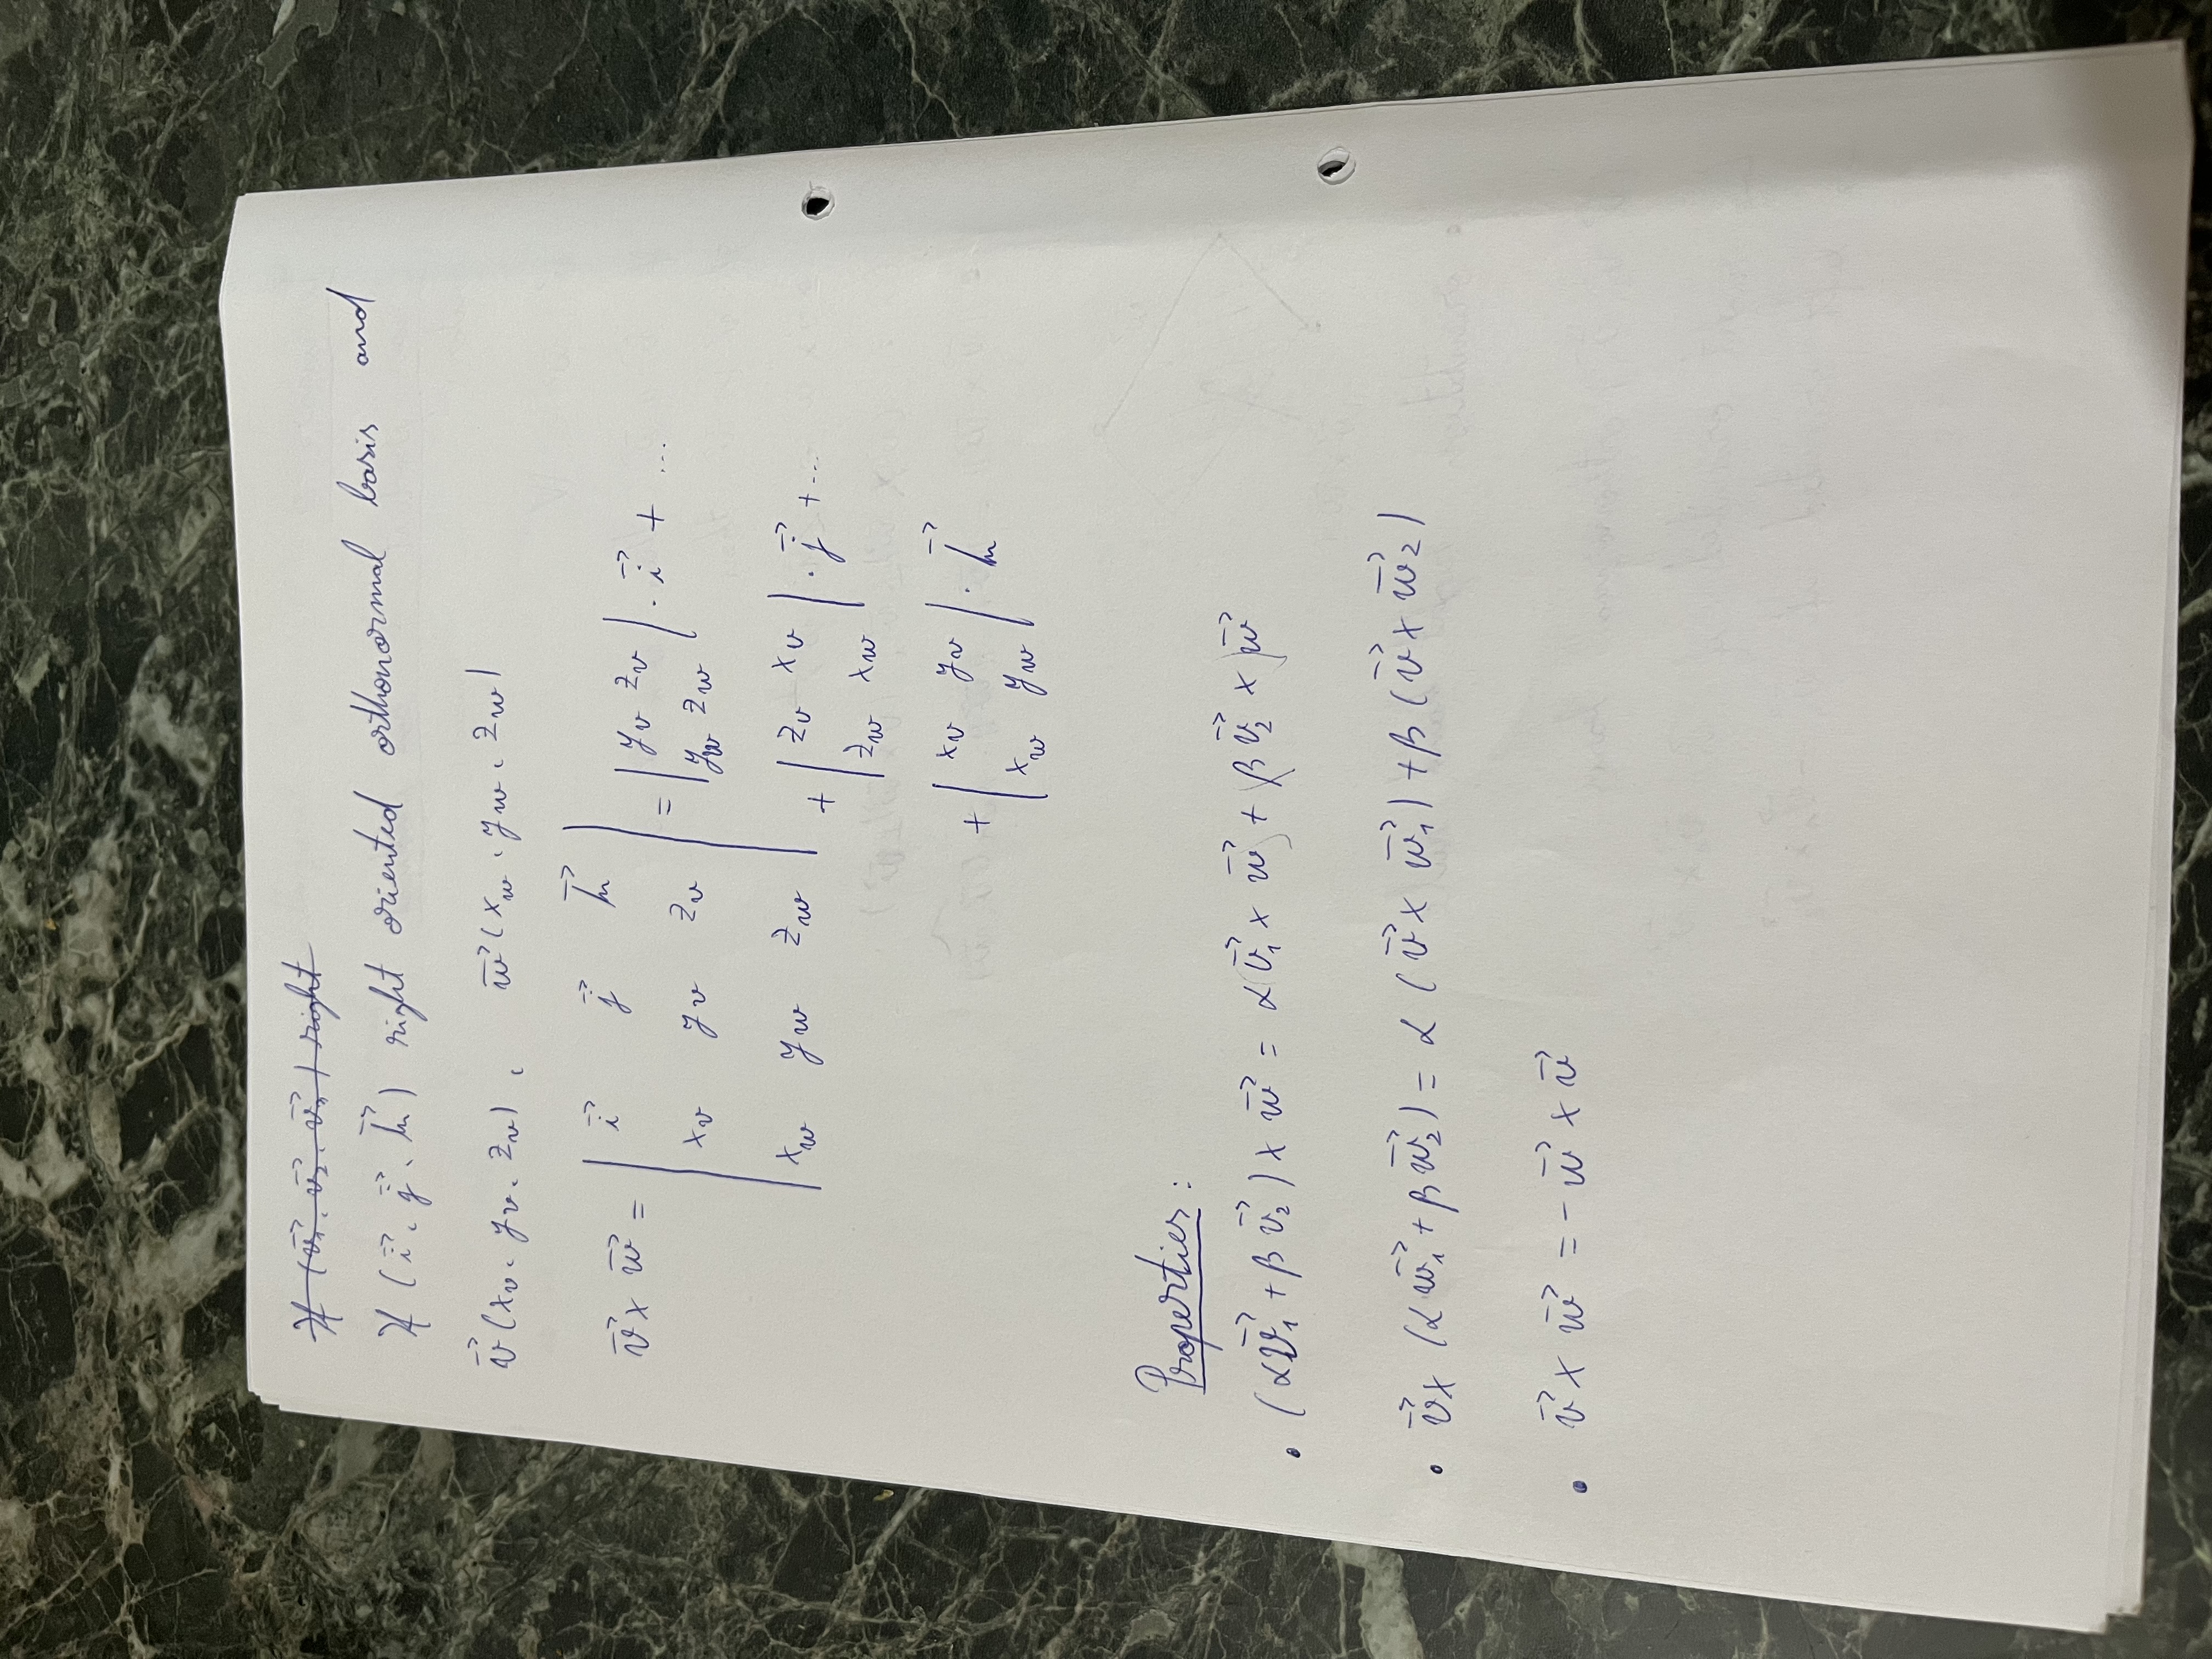 If (v₁⃗, v₂⃗, v₃⃗) right
If (i⃗, j⃗, k⃗) right oriented orthonormal basis and
v⃗(x_v, y_v, z_v), w⃗(x_w, y_w, z_w)
v⃗ × w⃗ = | i⃗ j⃗ k⃗ | = | y_v z_v | · i⃗ + ...
| x_v y_v z_v | | y_w z_w |
| x_w y_w z_w | + | z_v x_v | · j⃗ + ...
| z_w x_w |
+ | x_v y_v | · k⃗
| x_w y_w |
Properties:
• (αv₁⃗ + βv₂⃗) × w⃗ = α(v₁⃗ × w⃗) + β(v₂⃗ × w⃗)
• v⃗ × (αw₁⃗ + βw₂⃗) = α(v⃗ × w₁⃗) + β(v⃗ × w₂⃗)
• v⃗ × w⃗ = -w⃗ × v⃗